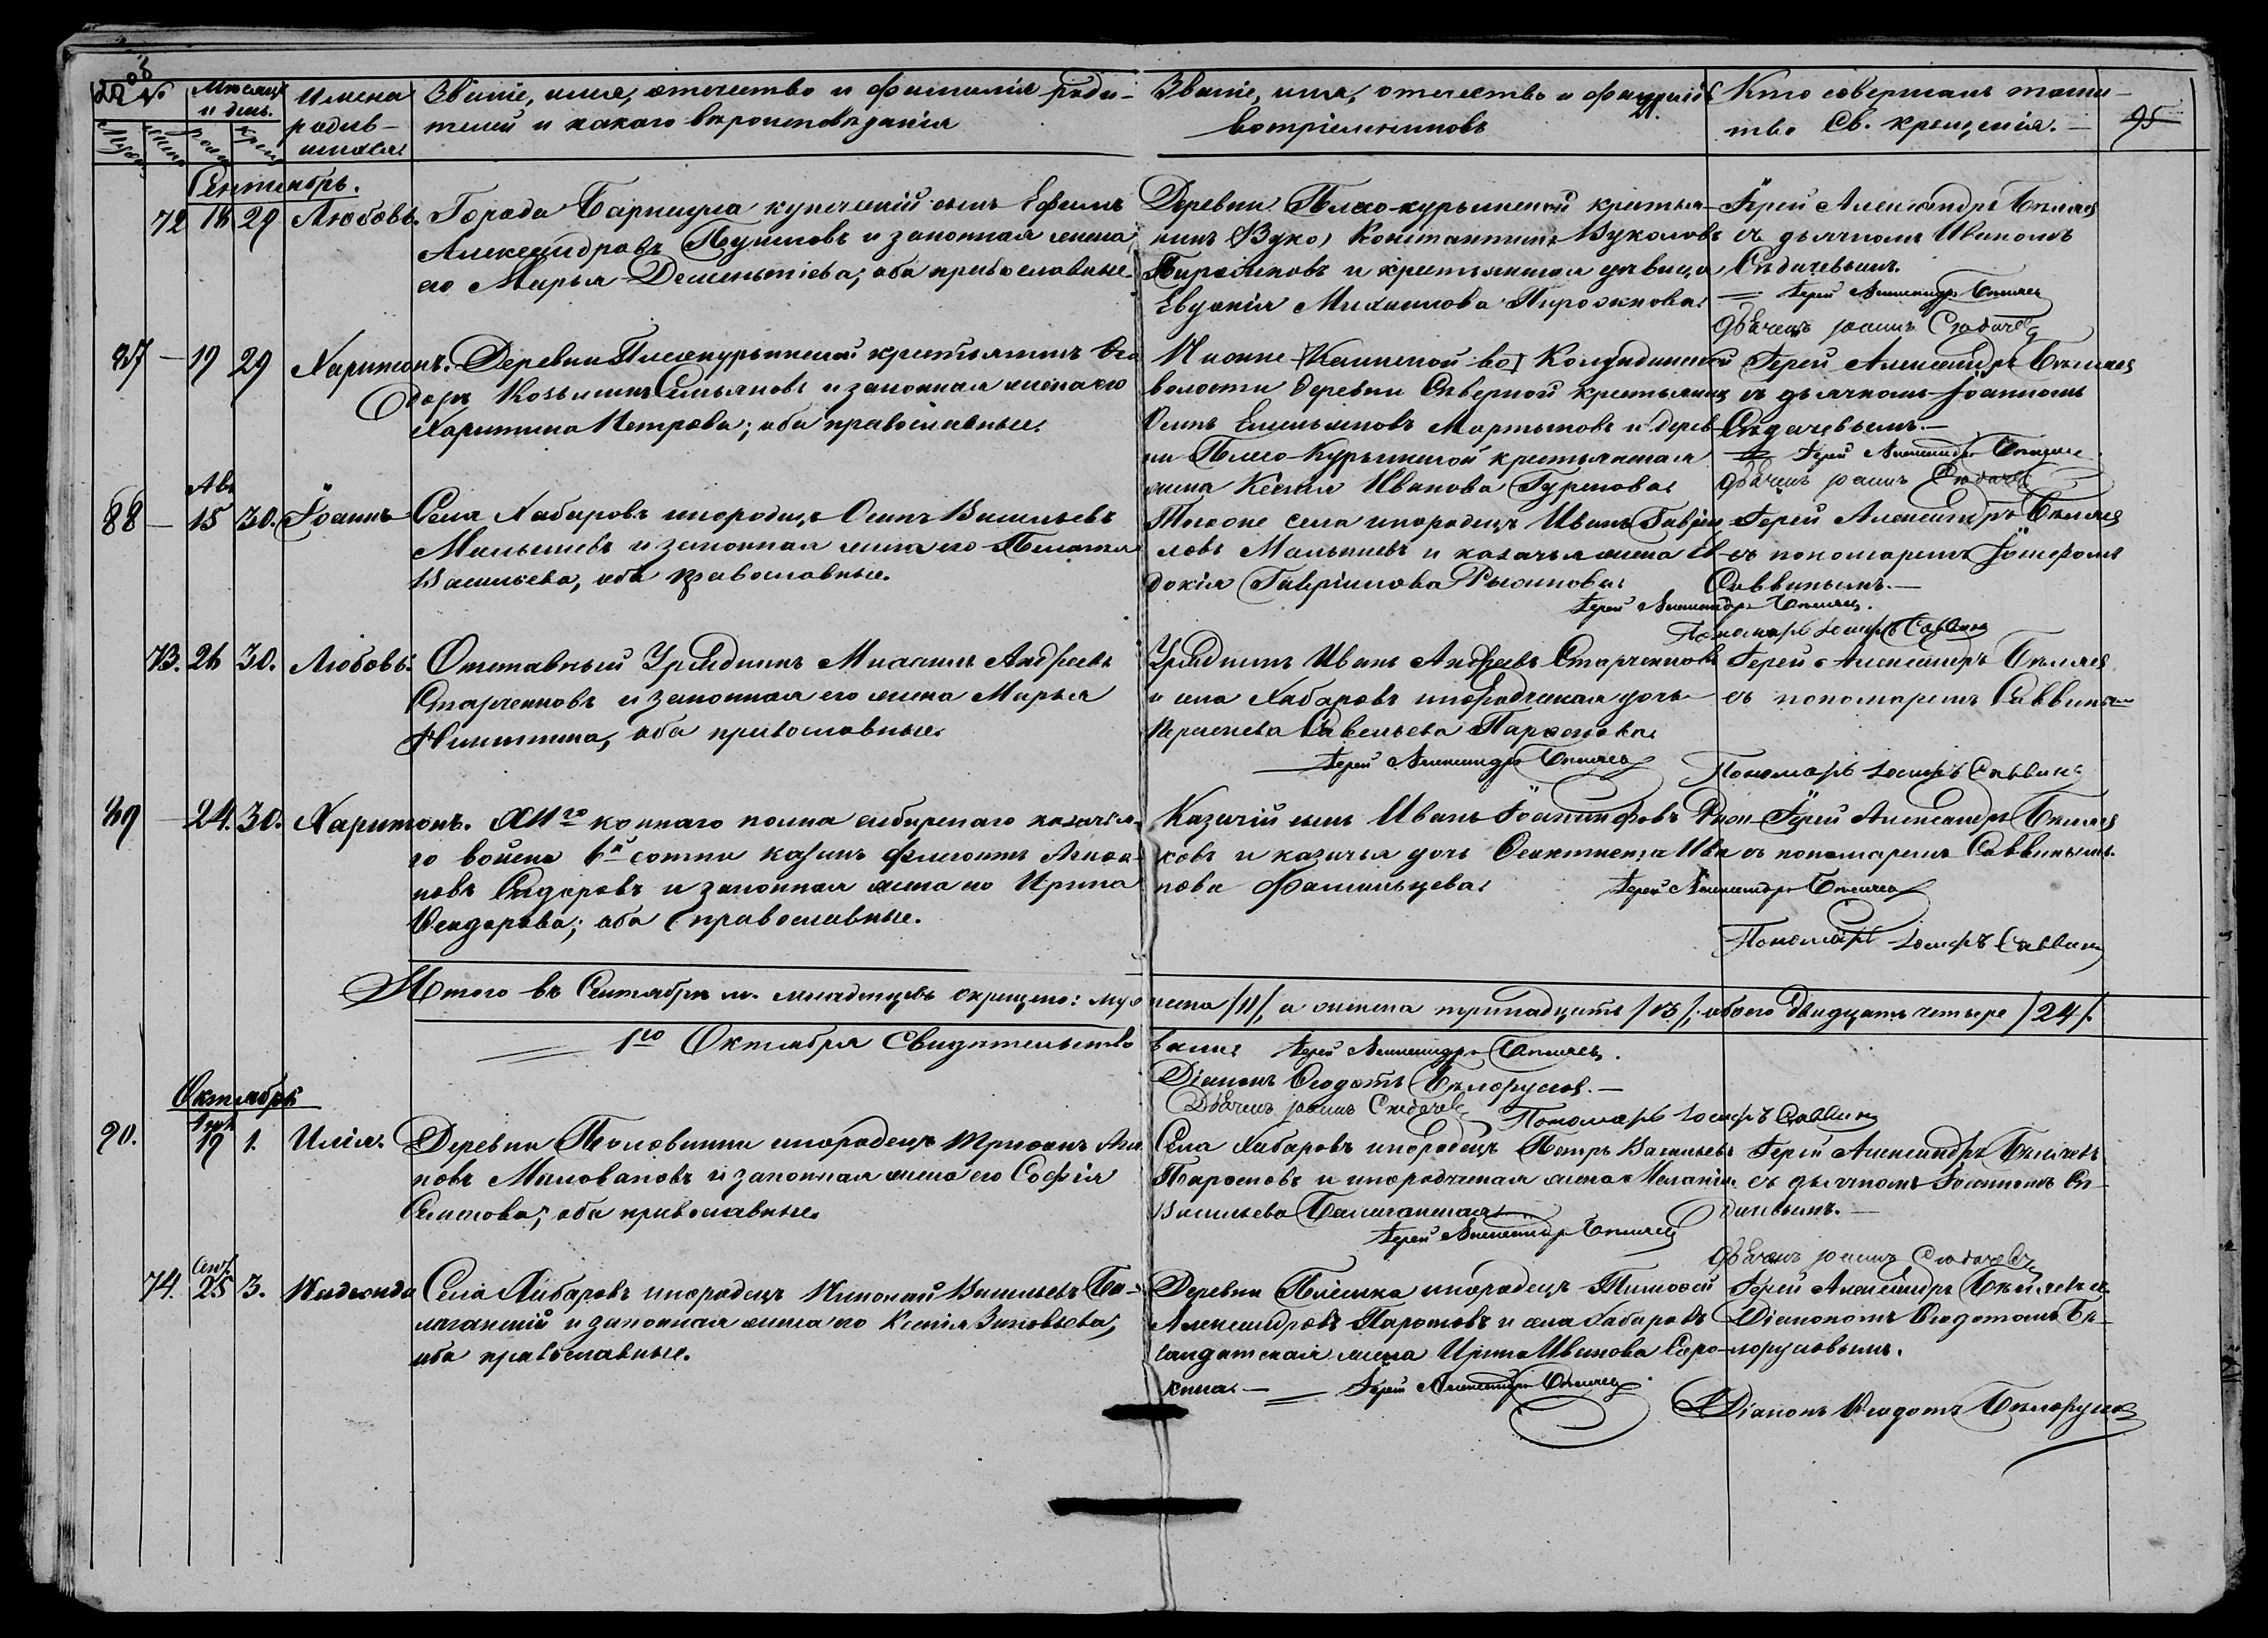 №
Мѣсяцъ и день.
Имена родив-шихся
Званіе, имя, отечество и фамилія роди-
телей и какого вѣроисповѣданія
Званіе, имя, отечество и фамилія
воспріемниковъ
Кто совершалъ таин-
ство Св. крещенія.
95
Сентябрь.
72 18 29 Любовь. Города Барнаула купеческій сынъ Ефимъ
Александровъ и законная жена
его Марья Дементіева; оба православные.
Деревни Плеско-курьинской крестья-
нинъ Константинъ Вуколовъ
и крестьянская дѣвица
Евгенія Михаилова Пирожкова.
Іерей Александръ Бѣляев
съ дьячкомъ Иваномъ
Сѣдачевымъ.
Іерей Александръ Бѣляев
Дьячекъ Іоаннъ Сѣдачев
87 19 29 Харитонъ. Деревни Плескокурьинской крестьянинъ Ѳео-
доръ Козьминъ и законная жена его
Харитина Петрова; оба православные.
волости деревни Сѣверной крестьянинъ
Осипъ Емельяновъ Мартыновъ и дерев-
ни Плеско-Курьинской крестьянская
жена Ксенія Иванова Гуркова.
Іерей Александръ Бѣляев
съ дьячкомъ Іоанномъ
Сѣдачевымъ.
Іерей Александръ Бѣляев
Дьячекъ Іоаннъ Сѣдачев
Авг
88 15 30. Іоаннъ Села Хабаровъ инородецъ Осипъ Васильевъ
Малышевъ и законная жена его Пелагія
Васильева, оба православные.
Тогоже села инородецъ Иванъ Гаврии-
ловъ Малышевъ и казачья жена Ев-
докія Гавріилова
Іерей Александръ Бѣляев
съ пономаремъ Іосифомъ
Саввинымъ.
Іерей Александръ Бѣляев.
Пономарь Іосифъ Саввин
73. 26 30. Любовь. Отставный Урядникъ Михаилъ Андреевъ
Старченковъ и законная его жена Марья
Никитина, оба православные.
Урядникъ Иванъ Андреевъ Старченковъ
и села Хабаровъ инородческая дочь
Савельева
Іерей Александръ Бѣляев
Іерей Александръ Бѣляев
съ пономаремъ Саввинымъ
Пономарь Іосифъ Саввин
89 24. 30. Харитонъ. коннаго полка сибирскаго казачья-
го войска 6й сотни казакъ
Сидоровъ и законная жена его Ирина
Ѳеодорова; оба православные.
Казачій сынъ Иванъ
ковъ и казачья дочь Ива-
нова
Іерей Александръ Бѣляев
съ пономаремъ Саввинымъ.
Іерей Александръ Бѣляев
Пономарь Іосифъ Саввин
Итого въ Сентябрѣ м. младенцевъ окрещено: мужеска /11/, а женска тринадцать /13/, обоего двадцать четыре /24/.
1го Октября свидѣтельствовали: Іерей Александръ Бѣляев.
Діаконъ Ѳеодотъ Бѣлоруссов.
Дьячекъ Іоаннъ Сѣдачев
Пономарь Іосифъ Саввин
Октябрь
90. 19 1. Илія. Деревни Половинки инородецъ
Миловановъ и законная жена его Софія
оба православные.
Села Хабаровъ инородецъ Петръ Васильевъ
и инородческая жена Меланія
Васильева Балаганская
Іерей Александръ Бѣляев
Іерей Александръ Бѣляевъ
съ дьячкомъ Іоанномъ Сѣ-
дачевымъ.
Дьячекъ Іоаннъ Сѣдачевъ
Сент
74. 25 3. Надежда Села Хабаровъ инородецъ Николай Васильевъ Ба-
лаганскій и законная жена его Ксенія Зиновьева;
оба православные.
Деревни инородецъ Тимоѳей
Александровъ и села Хабаровъ
солдатская жена Ирина Иванова Соро-
кина.
Іерей Александръ Бѣляев
Іерей Александръ Бѣляевъ съ
Діакономъ Ѳеодотомъ Бѣ-
лоруссовымъ.
Діаконъ Ѳеодотъ Бѣлоруссов